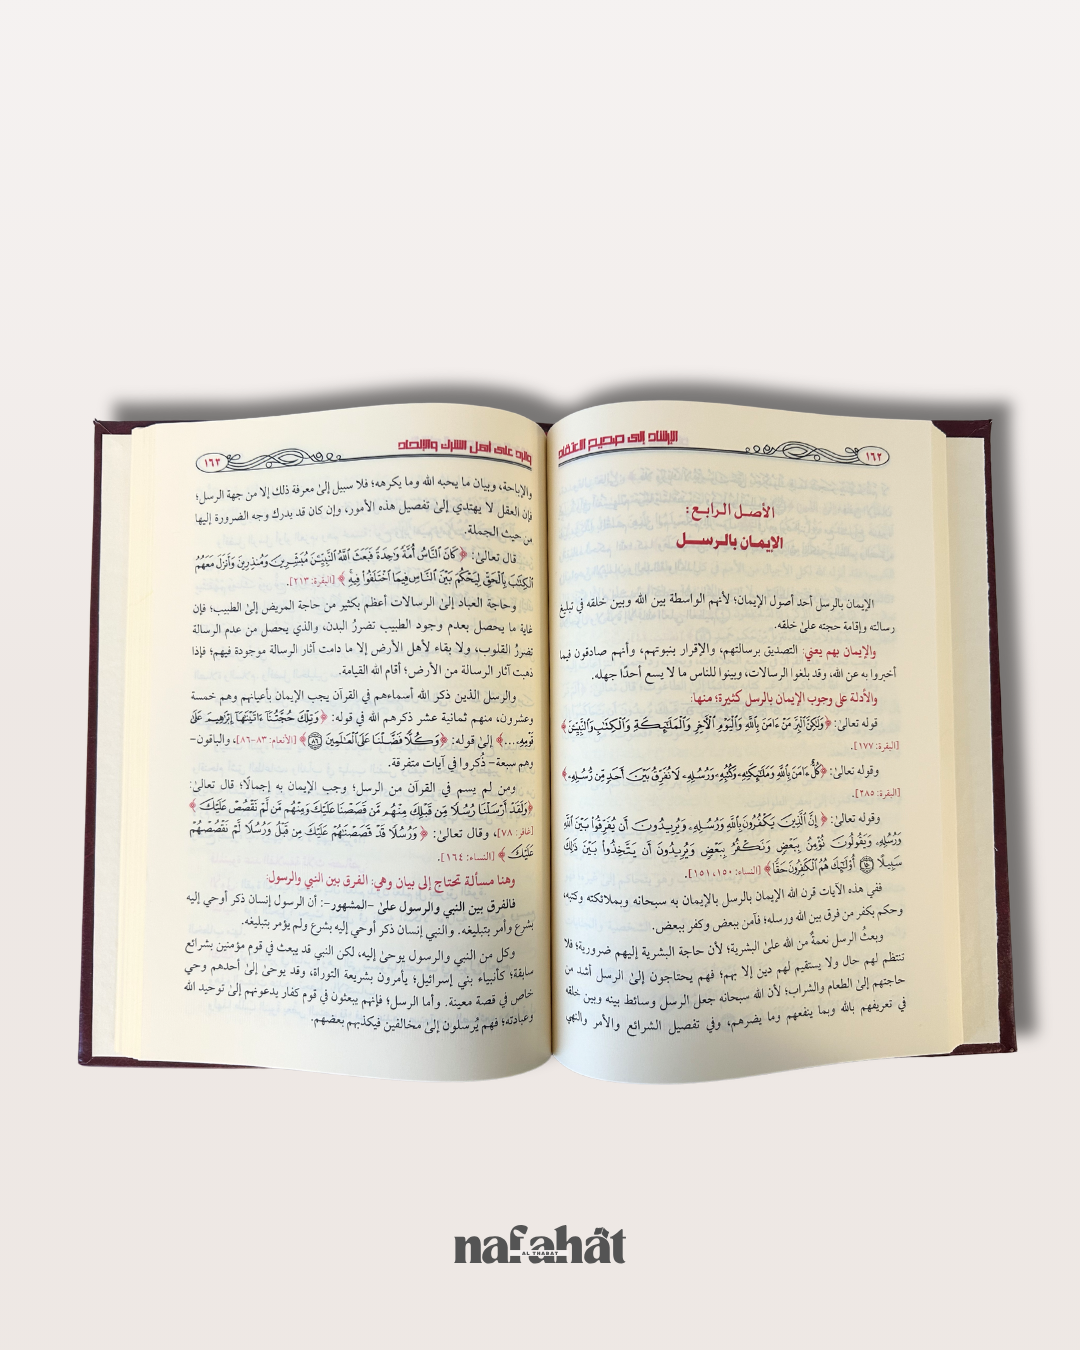 ١٦٢
الإرشاد إلى صحيح الاعتقاد
الأصل الرابع:
الإيمان بالرسل
الإيمان بالرسل أحد أصول الإيمان؛ لأنهم الواسطة بين الله وبين خلقه في تبليغ
رسالته وإقامة حجته علىٰ خلقه.
والإيمان بهم يعني: التصديق برسالتهم، والإقرار بنبوتهم، وأنهم صادقون فيما
أخبروا به عن الله، وقد بلغوا الرسالات، وبينوا للناس ما لا يسع أحدًا جهله.
والأدلة على وجوب الإيمان بالرسل كثيرة؛ منها:
قوله تعالىٰ: ﴿وَلَٰكِنَّ ٱلۡبِرَّ مَنۡ ءَامَنَ بِٱللَّهِ وَٱلۡيَوۡمِ ٱلۡأٓخِرِ وَٱلۡمَلَٰٓئِكَةِ وَٱلۡكِتَٰبِ وَٱلنَّبِيِّـۧنَ﴾
[البقرة: ١٧٧].
وقوله تعالىٰ: ﴿كُلٌّ ءَامَنَ بِٱللَّهِ وَمَلَٰٓئِكَتِهِۦ وَكُتُبِهِۦ وَرُسُلِهِۦ لَا نُفَرِّقُ بَيۡنَ أَحَدٖ مِّن رُّسُلِهِۦ﴾
[البقرة: ٢٨٥].
وقوله تعالىٰ: ﴿إِنَّ ٱلَّذِينَ يَكۡفُرُونَ بِٱللَّهِ وَرُسُلِهِۦ وَيُرِيدُونَ أَن يُفَرِّقُواْ بَيۡنَ ٱللَّهِ
وَرُسُلِهِۦ وَيَقُولُونَ نُؤۡمِنُ بِبَعۡضٖ وَنَكۡفُرُ بِبَعۡضٖ وَيُرِيدُونَ أَن يَتَّخِذُواْ بَيۡنَ ذَٰلِكَ
سَبِيلًا ١٥٠ أُوْلَٰٓئِكَ هُمُ ٱلۡكَٰفِرُونَ حَقّٗا﴾ [النساء: ١٥٠، ١٥١].
ففي هذه الآيات قرن الله الإيمان بالرسل بالإيمان به سبحانه وبملائكته وكتبه،
وحكم بكفر من فرق بين الله ورسله؛ فآمن ببعض وكفر ببعض.
وبعثُ الرسل نعمةٌ من الله علىٰ البشرية؛ لأن حاجة البشرية إليهم ضرورية؛ فلا
تنتظم لهم حال ولا يستقيم لهم دين إلا بهم؛ فهم يحتاجون إلىٰ الرسل أشد من
حاجتهم إلىٰ الطعام والشراب؛ لأن الله سبحانه جعل الرسل وسائط بينه وبين خلقه
في تعريفهم بالله وبما ينفعهم وما يضرهم، وفي تفصيل الشرائع والأمر والنهي
والرد على أهل الشرك والإلحاد
١٦٣
والإباحة، وبيان ما يحبه الله وما يكرهه؛ فلا سبيل إلىٰ معرفة ذلك إلا من جهة الرسل؛
فإن العقل لا يهتدي إلىٰ تفصيل هذه الأمور، وإن كان قد يدرك وجه الضرورة إليها
من حيث الجملة.
قال تعالىٰ: ﴿كَانَ ٱلنَّاسُ أُمَّةٗ وَٰحِدَةٗ فَبَعَثَ ٱللَّهُ ٱلنَّبِيِّـۧنَ مُبَشِّرِينَ وَمُنذِرِينَ وَأَنزَلَ مَعَهُمُ
ٱلۡكِتَٰبَ بِٱلۡحَقِّ لِيَحۡكُمَ بَيۡنَ ٱلنَّاسِ فِيمَا ٱخۡتَلَفُواْ فِيهِۚ﴾ [البقرة: ٢١٣].
وحاجة العباد إلىٰ الرسالات أعظم بكثير من حاجة المريض إلىٰ الطبيب؛ فإن
غاية ما يحصل بعدم وجود الطبيب تضررُ البدن، والذي يحصل من عدم الرسالة
تضررُ القلوب، ولا بقاء لأهل الأرض إلا ما دامت آثار الرسالة موجودة فيهم؛ فإذا
ذهبت آثار الرسالة من الأرض؛ أقام الله القيامة.
والرسل الذين ذكر الله أسماءهم في القرآن يجب الإيمان بأعيانهم وهم خمسة
وعشرون، منهم ثمانية عشر ذكرهم الله في قوله: ﴿وَتِلۡكَ حُجَّتُنَآ ءَاتَيۡنَٰهَآ إِبۡرَٰهِيمَ عَلَىٰ
قَوۡمِهِۦ...﴾ إلىٰ قوله: ﴿وَكُلّٗا فَضَّلۡنَا عَلَى ٱلۡعَٰلَمِينَ ٨٦﴾ [الأنعام: ٨٣-٨٦]، والباقون-
وهم سبعة- ذُكروا في آيات متفرقة.
ومن لم يسم في القرآن من الرسل؛ وجب الإيمان به إجمالًا؛ قال تعالىٰ:
﴿وَلَقَدۡ أَرۡسَلۡنَا رُسُلٗا مِّن قَبۡلِكَ مِنۡهُم مَّن قَصَصۡنَا عَلَيۡكَ وَمِنۡهُم مَّن لَّمۡ نَقۡصُصۡ عَلَيۡكَ﴾
[غافر: ٧٨]، وقال تعالىٰ: ﴿وَرُسُلٗا قَدۡ قَصَصۡنَٰهُمۡ عَلَيۡكَ مِن قَبۡلُ وَرُسُلٗا لَّمۡ نَقۡصُصۡهُمۡ
عَلَيۡكَ﴾ [النساء: ١٦٤].
وهنا مسألة تحتاج إلى بيان وهي: الفرق بين النبي والرسول:
فالفرق بين النبي والرسول علىٰ -المشهور-: أن الرسول إنسان ذكر أوحي إليه
بشرع وأمر بتبليغه. والنبي إنسان ذكر أوحي إليه بشرع ولم يؤمر بتبليغه.
وكل من النبي والرسول يوحىٰ إليه، لكن النبي قد يبعث في قوم مؤمنين بشرائع
سابقة؛ كأنبياء بني إسرائيل؛ يأمرون بشريعة التوراة، وقد يوحىٰ إلىٰ أحدهم وحي
خاص في قصة معينة. وأما الرسل؛ فإنهم يبعثون في قوم كفار يدعونهم إلىٰ توحيد الله
وعبادته؛ فهم يُرسلون إلىٰ مخالفين فيكذبهم بعضهم.
nafahât
AL THABAT